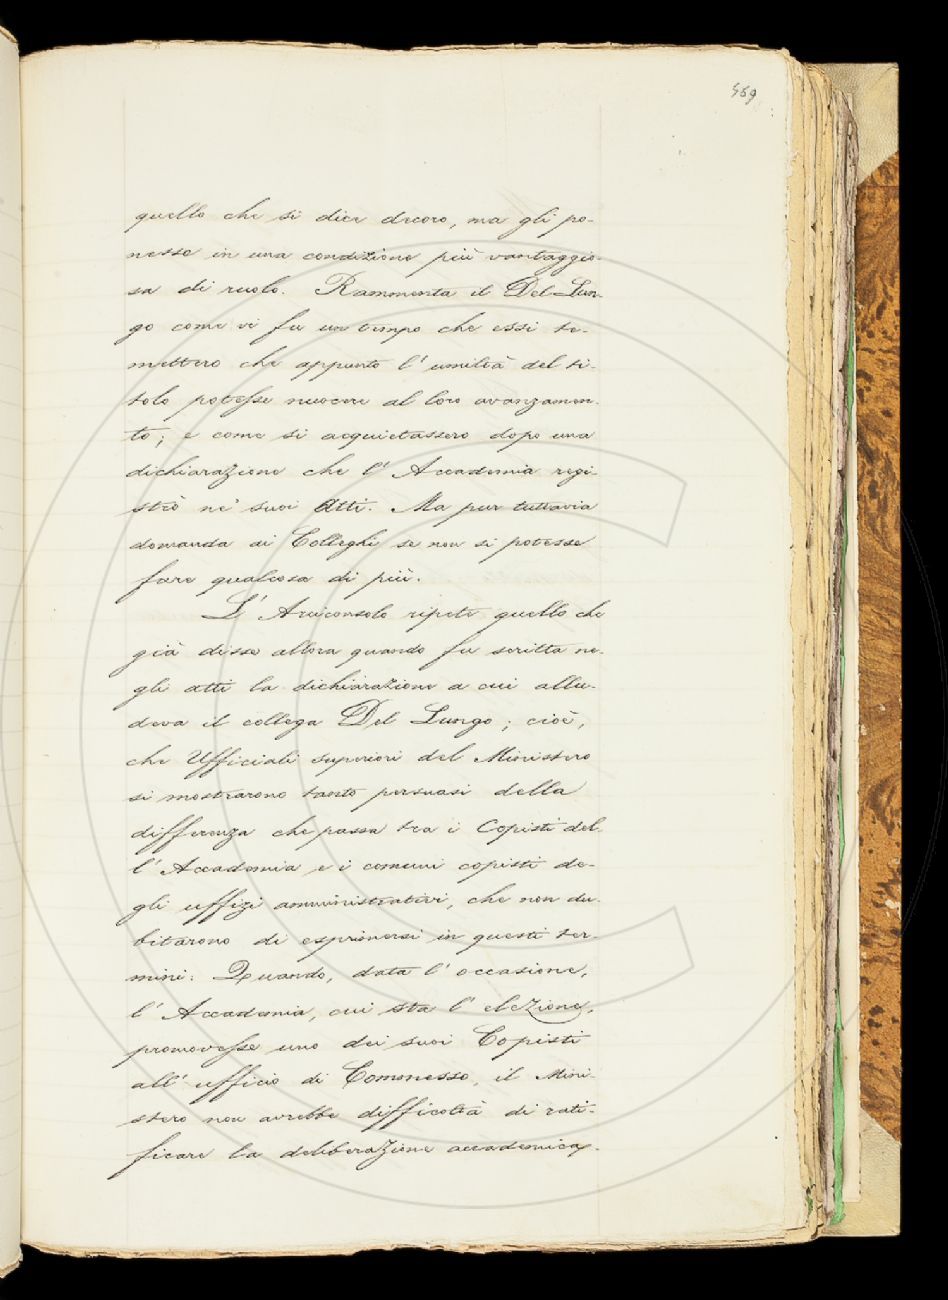 569
quello che si dice decoro, ma gli po-
nesse in una condizione più vantaggio-
sa di ruolo. Rammenta il Del Lun-
go come vi fu un tempo che essi te-
mettero che appunto l'umiltà del ti-
tolo potesse nuocere al loro avanzamen-
to; e come si acquietassero dopo una
dichiarazione che l'Accademia regi-
strò ne' suoi Atti. Ma pur tuttavia
domanda ai Colleghi se non si potesse
fare qualcosa di più.
L'Arciconsolo ripete quello che
già disse allora quando fu scritta ne-
gli atti la dichiarazione a cui allu-
deva il collega Del Lungo; cioè,
che Ufficiali superiori del Ministero
si mostrarono tanto persuasi della
differenza che passa tra i Copisti del-
l'Accademia e i comuni copisti de-
gli uffizi amministrativi, che non du-
bitarono di esprimersi in questi ter-
mini: Quando, data l'occasione,
l'Accademia, cui sta l'elezione,
promovesse uno dei suoi Copisti
all'ufficio di Commesso, il Mini-
stero non avrebbe difficoltà di rati-
ficare la deliberazione accademica.